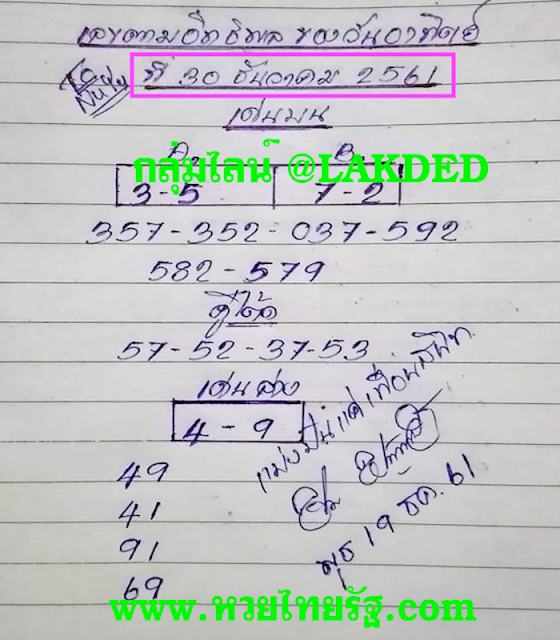 เลขตามอิทธิพล ของวันอาทิตย์
ที่ 30 ธันวาคม 2561
เด่นบน
A B
กลุ่มไลน์ @LAKDED
3-5 7-2
357-352-037-592
582-579
คู่โต้ด
57-52-37-53
เด่นล่าง
4-9
49
41
91
69
แบ่งปันแด่เพื่อนสนิท
พุธ 19 ธค. 61
www.หวยไทยรัฐ.com